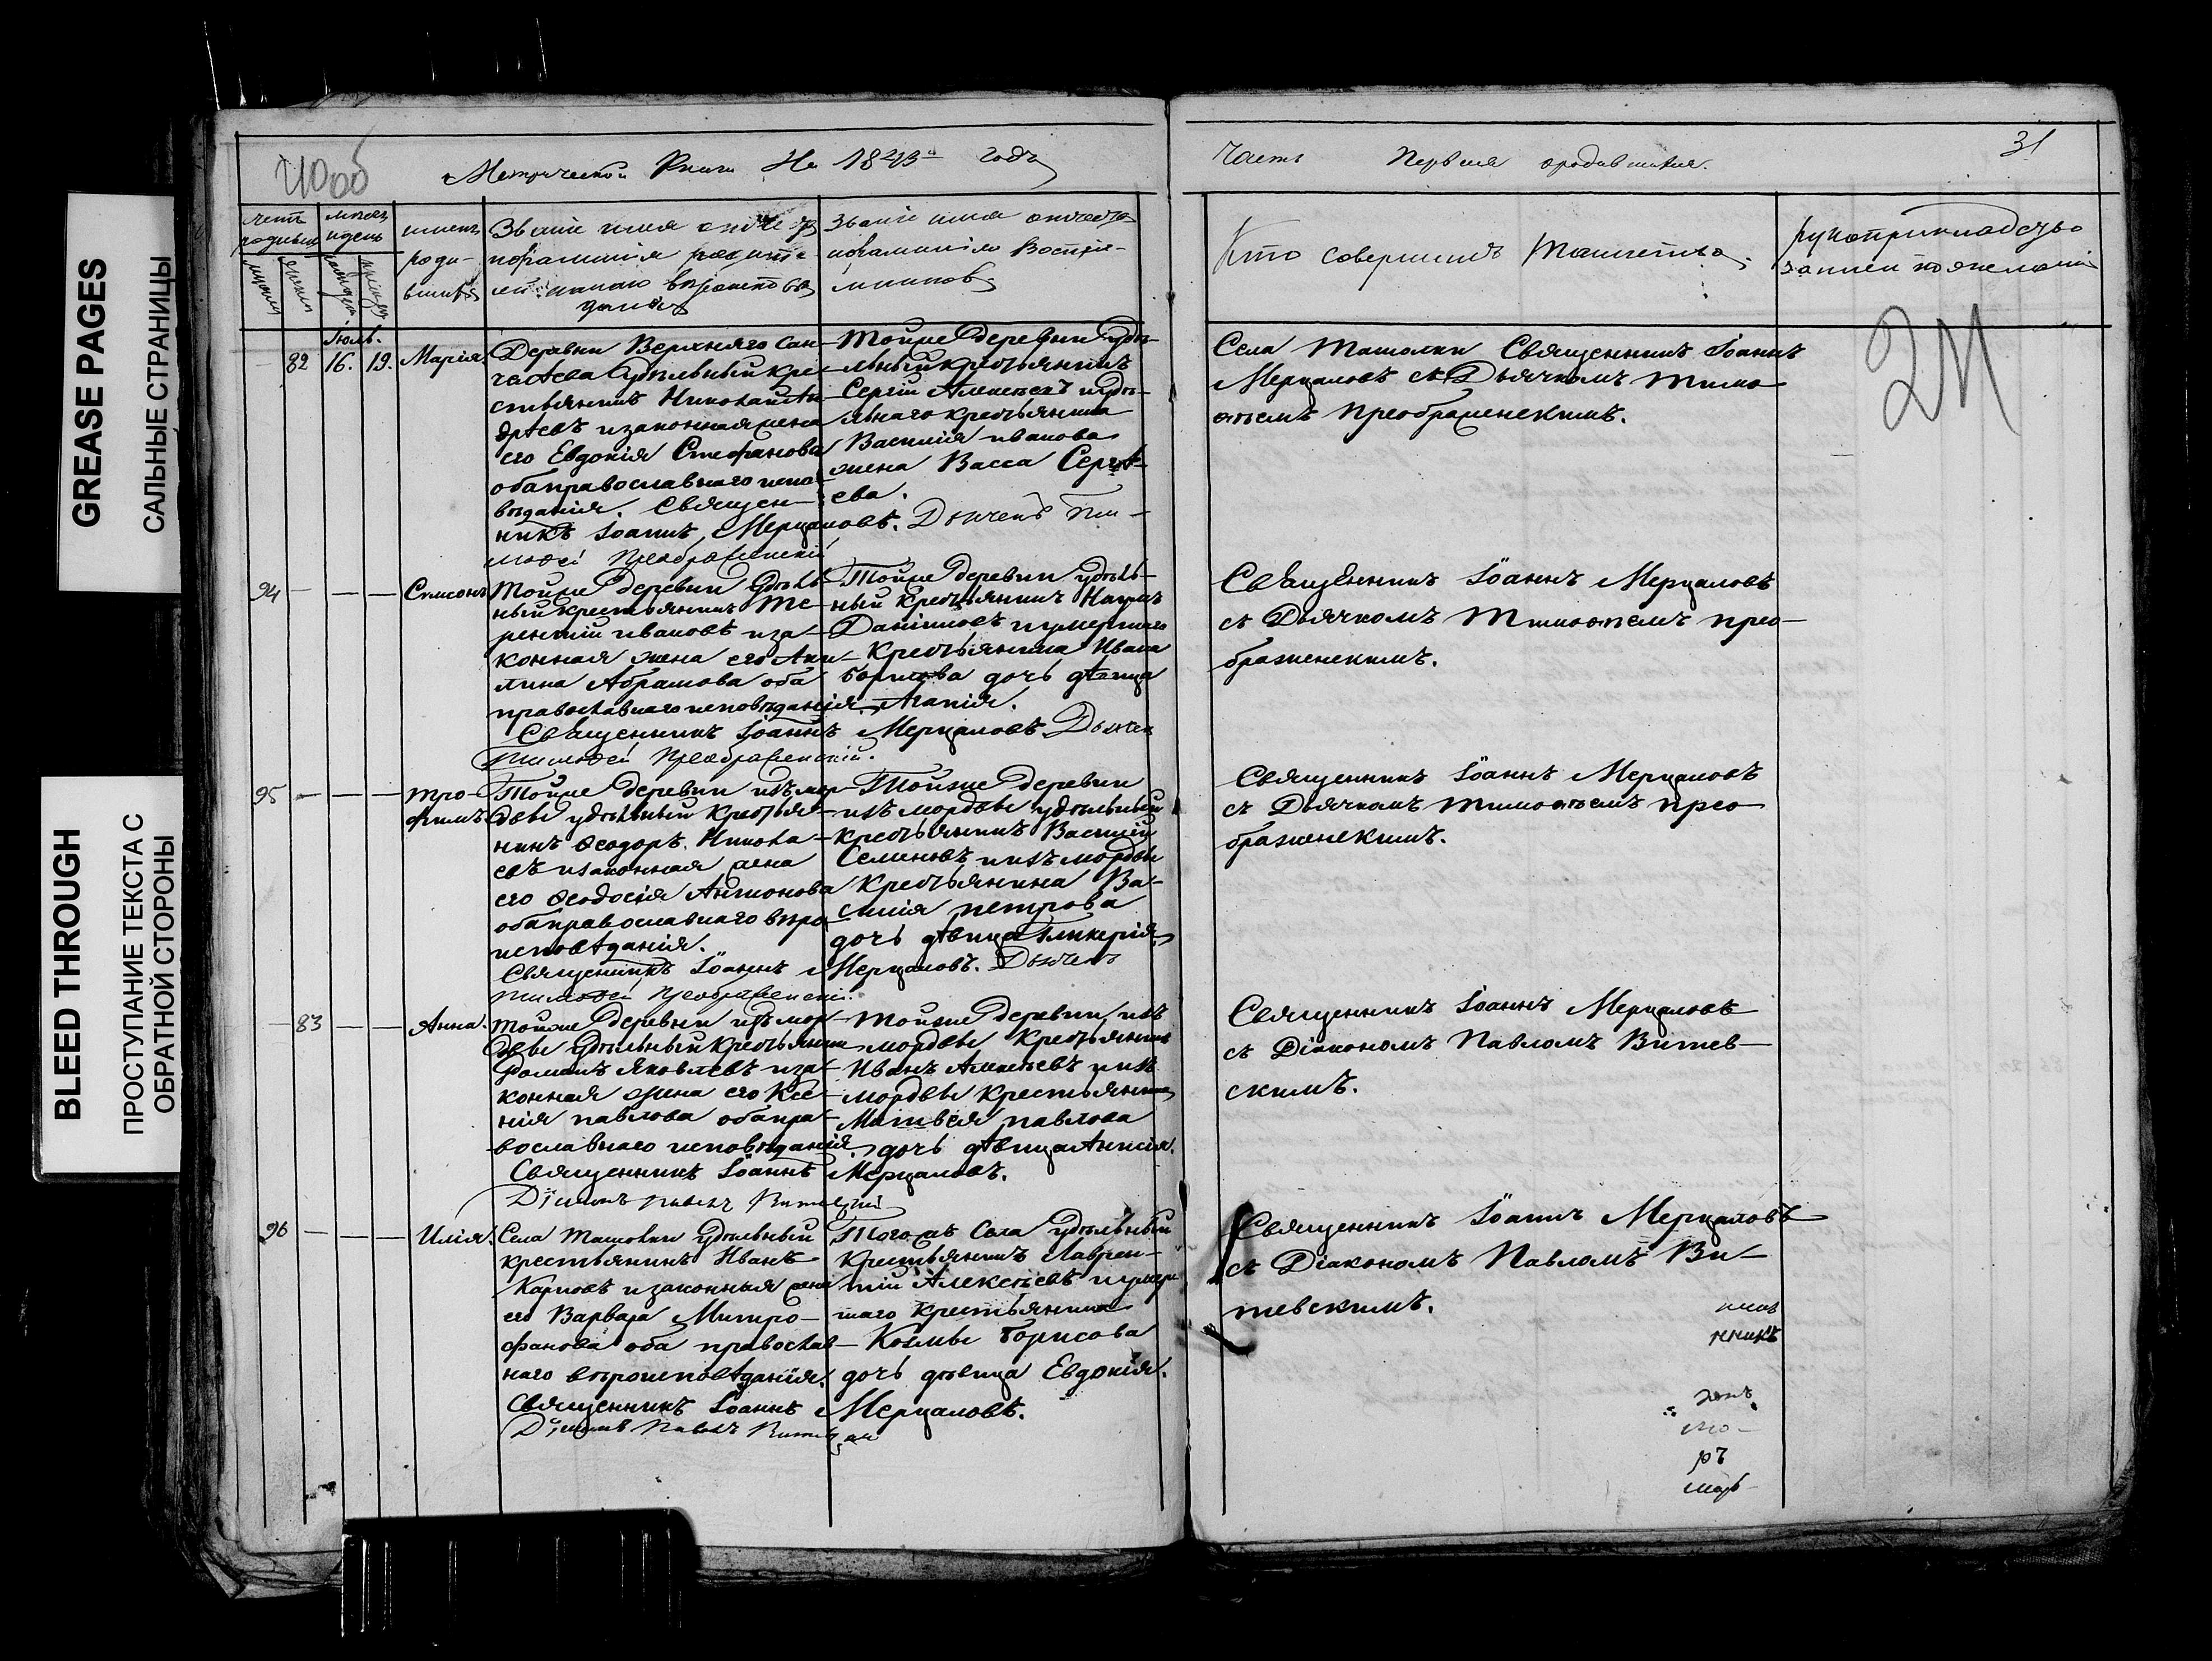 GREASE PAGES
САЛЬНЫЕ СТРАНИЦЫ
BLEED THROUGH
ПРОСТУПАНИЕ ТЕКСТА С
ОБРАТНОЙ СТОРОНЫ
Метрической Книги На 1843 годъ
имена
роди-
вшихъ
Званіе имя
Званіе имя отчество
ифамилія Воспрiе-
мниковъ
Іюль.
82 16. 19. Марія.
Деревни Верхняго Сан-
челѣева Удѣльный кре-
стьянинъ Николай Ан-
дрѣевъ изаконная жена
его Евдокія Стефанова
обаправославнаго испо-
вѣданія. Священ-
никъ Іоаннъ Мерцаловъ. Дьячекъ Ти-
моѳей Преображенскій
Тойже деревни удѣ-
льный крестьянинъ
Сергій Алексѣевъ иудѣ-
льнаго крестьянина
Василія иванова
жена Васса Сергѣ-
ева.
94 — — — Симеонъ
Тойже деревни Удѣль-
ный крестьянинъ Те-
рентій ивановъ иза-
конная жена его Аку-
лина Абрамова оба
православнаго исповѣданія.
Священникъ Іоаннъ Мерцаловъ Дьячек
Тимоѳей Преображенскій.
Тойже деревни удѣль-
ный крестьянинъ
Даніиловъ иумершаго
крестьянина Ивана
Борисова дочь дѣвица
Агапія.
95 — — — Тро-
фимъ
Тойже деревни изъ мор-
двы удѣльный крестья-
нинъ Ѳеодоръ Никола-
евъ изаконная жена
его Ѳеодосія Антонова
обаправославнаго вѣро
исповѣданія.
Священникъ Іоаннъ Мерцаловъ. Дьячекъ
Тимоѳей Преображенскій.
Тойже деревни
изъ мордвы удѣльный
крестьянинъ Василій
Семеновъ иизъ мордвы
Крестьянина Ва-
силія петрова
дочь дѣвица Гликерія.
83 — — Анна.
Тойже деревни изъ мор-
двы Удѣльный Крестьянин
Романъ Яковлевъ иза-
конная жена его Ксе-
нія павлова обапра-
вославнаго исповѣданія.
Священникъ Іоаннъ Мерцаловъ.
Діаконъ Павелъ Витевскій
Тойже деревни изъ
мордвы Крестьянинъ
Иванъ Алексѣевъ иизъ
мордвы Крестьянина
Матвѣя павлова
дочь дѣвица Анисія.
96 — — — Илія.
Села Ташолки удѣльный
крестьянинъ Иванъ
Карповъ изаконная жена
его Варвара Митро-
фанова оба православ-
наго вѣроисповѣданія.
Священникъ Іоаннъ Мерцаловъ.
Діаконъ Павелъ Витевскій
Тогожъ Села удѣльный
Крестьянинъ Лаврен-
тій Алексѣевъ иумер-
шаго крестьянина
Козмы Борисова
дочь дѣвица Евдокія.
Часть Первая ородившихся.
31
Кто совершилъ Таинство.
рукоприкладство
записи пожеланію
24
Села Ташолки Священникъ Іоаннъ
Мерцаловъ съ Дьячкомъ Тимо-
ѳеемъ Преображенскимъ.
Священникъ Іоаннъ Мерцаловъ
съ Дьячкомъ Тимоѳеемъ прео-
браженскимъ.
Священникъ Іоаннъ Мерцаловъ
съ Дьячкомъ Тимоѳеемъ прео-
браженскимъ.
Священникъ Іоаннъ Мерцаловъ
съ Діакономъ Павломъ Витев-
скимъ.
Священникъ Іоаннъ Мерцаловъ
съ Діакономъ Павломъ Ви-
тевскимъ.